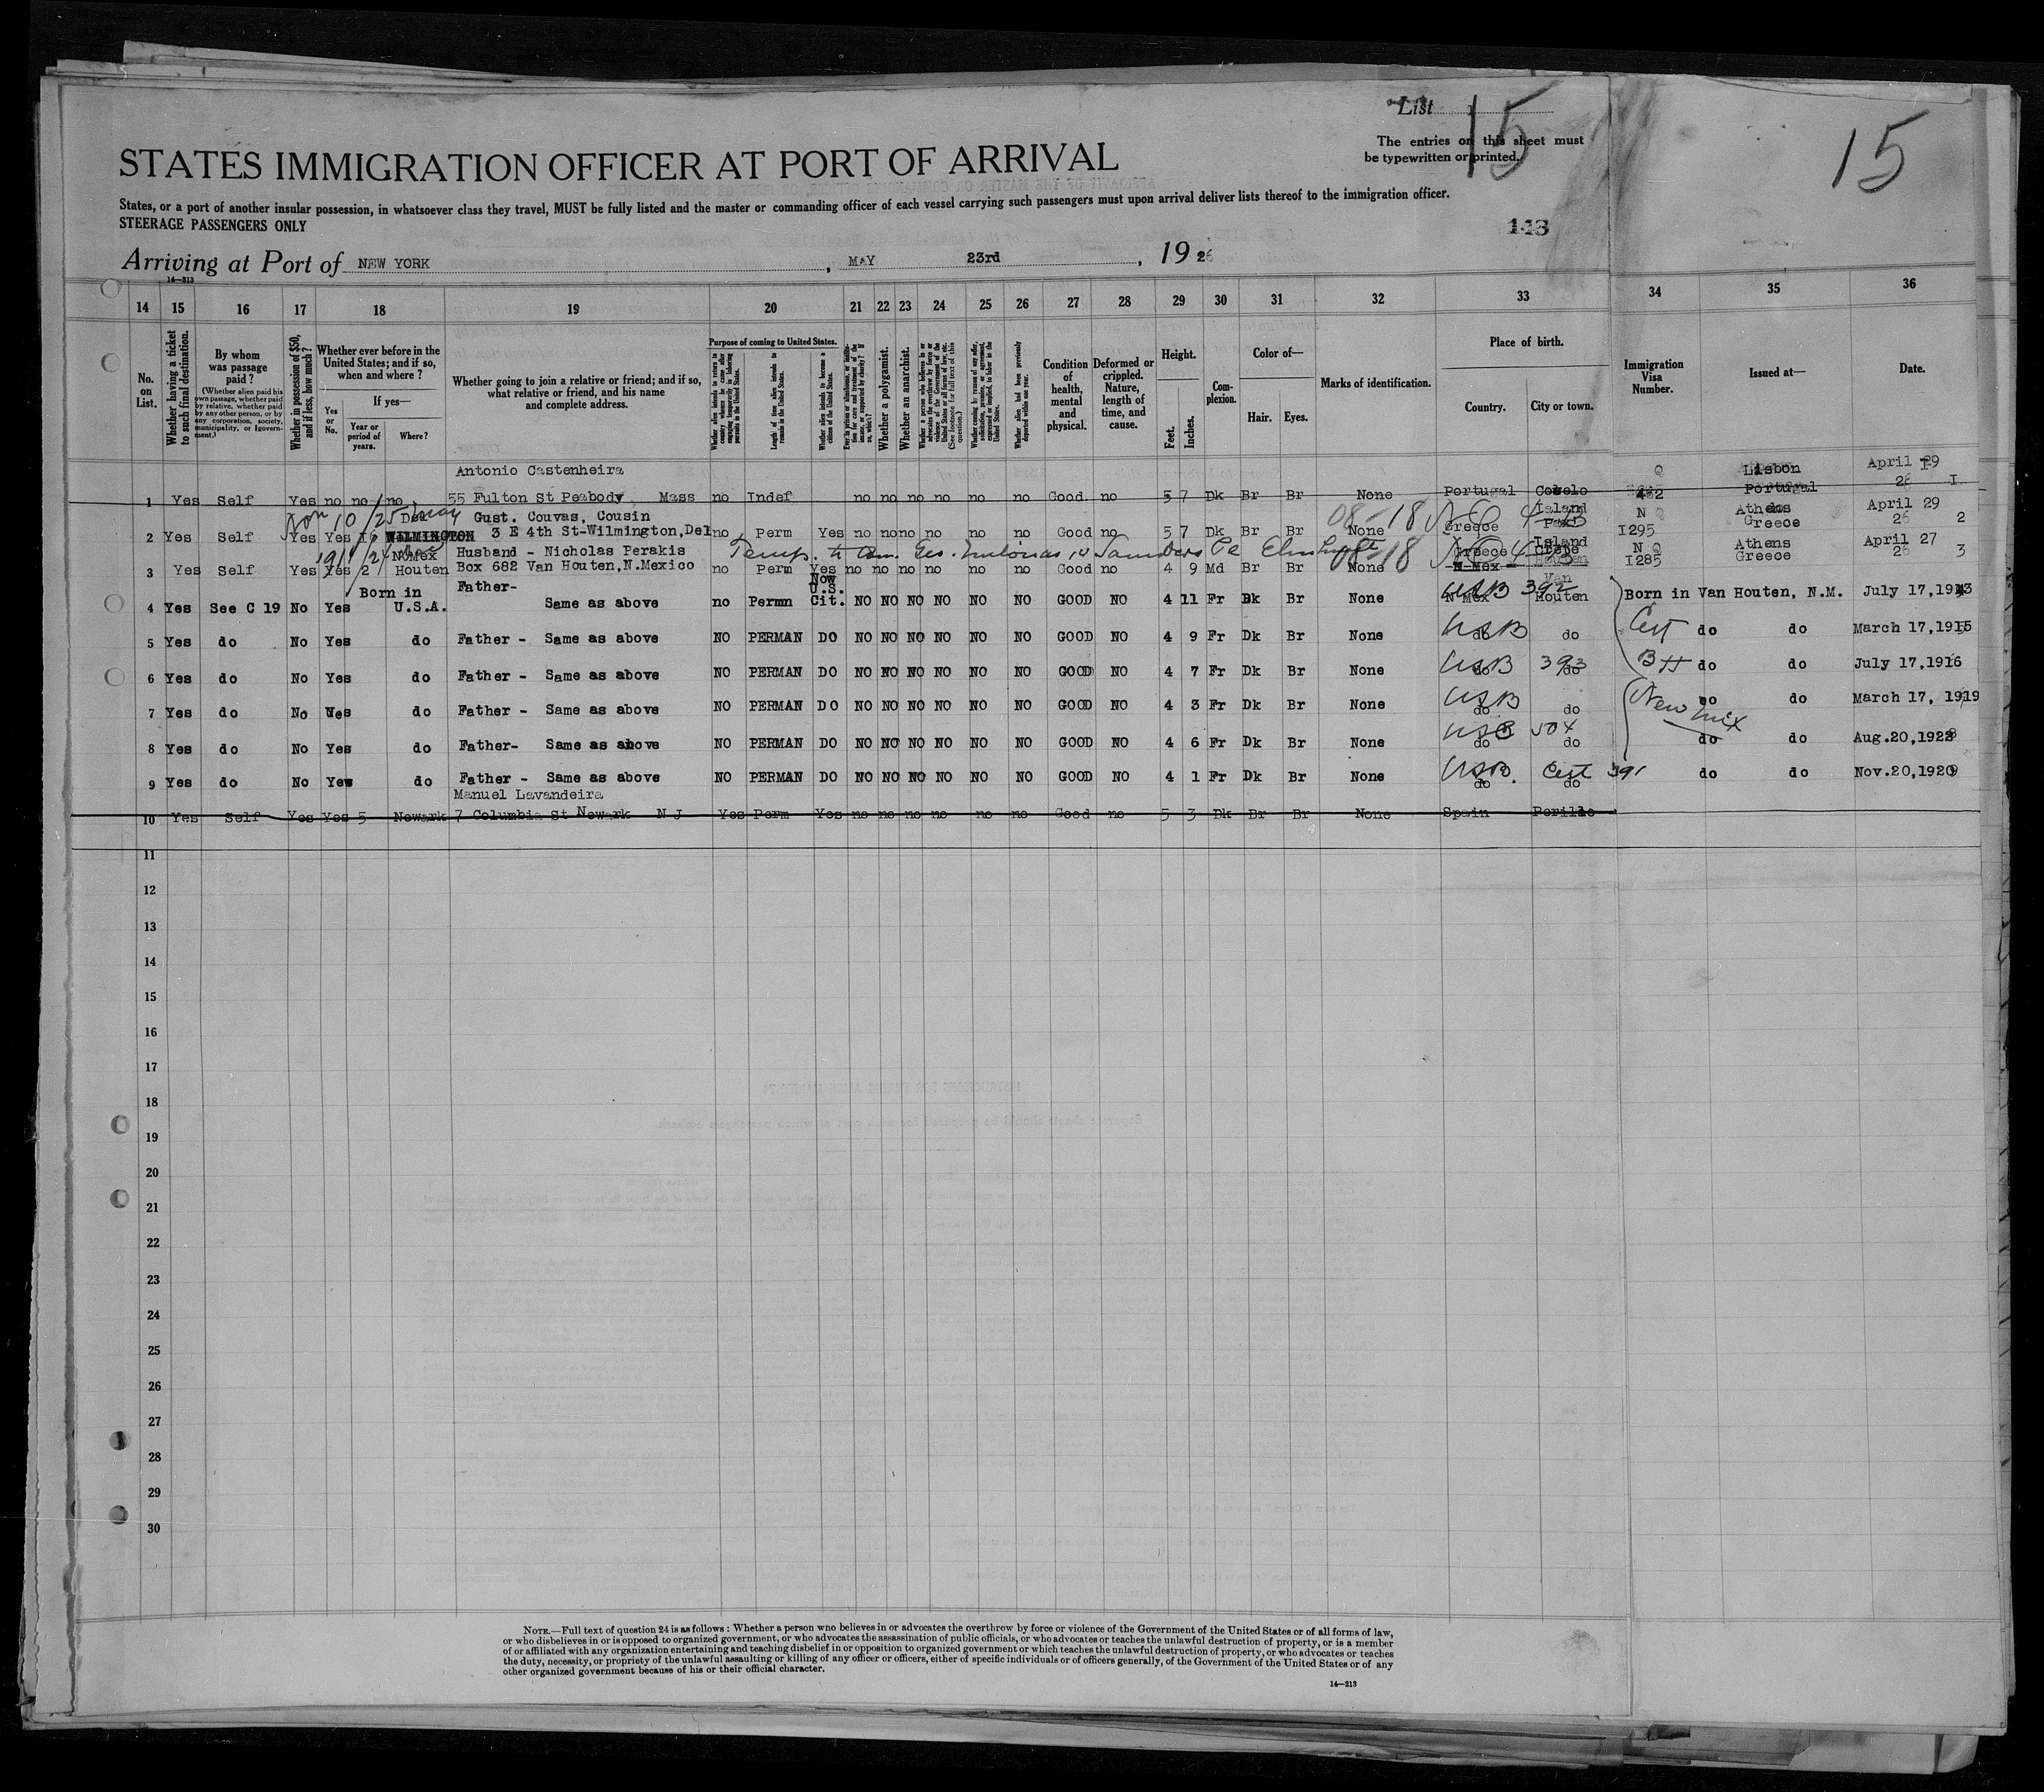 List 15
The entries on this sheet must
be typewritten or printed.
15
STATES IMMIGRATION OFFICER AT PORT OF ARRIVAL
States, or a port of another insular possession, in whatsoever class they travel, MUST be fully listed and the master or commanding officer of each vessel carrying such passengers must upon arrival deliver lists thereof to the immigration officer.
STEERAGE PASSENGERS ONLY
143
Arriving at Port of NEW YORK, MAY 23rd, 1926
14—213
14 15 16 17 18 19 20 21 22 23 24 25 26 27 28 29 30 31 32 33 34 35 36
No. on List.
Whether having a ticket to such final destination.
By whom was passage paid?
(Whether alien paid his own passage, whether paid by relative, whether paid by any other person, or by any corporation, society, municipality, or government.)
Whether in possession of $50, and if less, how much?
Whether ever before in the United States; and if so, when and where?
If yes—
Yes or No.
Year or period of years.
Where?
Whether going to join a relative or friend; and if so, what relative or friend, and his name and complete address.
Purpose of coming to United States.
Whether alien intends to return to country whence he came after engaging temporarily in laboring pursuits in the United States.
Length of time alien intends to remain in the United States.
Whether alien intends to become a citizen of the United States.
Ever in prison or almshouse, or institution for care and treatment of the insane, or supported by charity? If so, which?
Whether a polygamist.
Whether an anarchist.
Whether coming by reason of any offer, solicitation, promise, or agreement, expressed or implied, to labor in the United States.
Whether alien had been previously deported within one year.
Condition of health, mental and physical.
Deformed or crippled. Nature, length of time, and cause.
Height.
Feet.
Inches.
Complexion.
Color of—
Hair.
Eyes.
Marks of identification.
Place of birth.
Country.
City or town.
Immigration Visa Number.
Issued at—
Date.
Antonio Castenheira Q Lisbon April 29
1 Yes Self Yes no no no 55 Fulton St Peabody Mass no Indef no no no no no no Good no 5 7 Dk Br Br None Portugal 432 Portugal 26 I
10/25 Del Gust. Couvas, Cousin 08-18 NQ 4-23 Island N Q Athens April 29
2 Yes Self Yes Yes 16 WILMINGTON 3 E 4th St-Wilmington, Del no Perm Yes no no no no no no Good no 5 7 Dk Br Br None Greece Paxo I295 Greece 26 2
1911/24 N Mex Husband - Nicholas Perakis Greece Island Crete N Q Athens April 27
3 Yes Self Yes Yes 2 Houten Box 682 Van Houten, N.Mexico no Perm Yes no no no no no no Good no 4 9 Md Br Br None N-Mex Houten I285 Greece 26 3
Born in Father- Now U.S. USB 392 Van
4 Yes See C 19 No Yes U.S.A. Same as above no Permn Cit. NO NO NO NO NO NO GOOD NO 4 11 Fr Dk Br None N Mex Houten Born in Van Houten, N.M. July 17, 1913
5 Yes do No Yes do Father - Same as above NO PERMAN DO NO NO NO NO NO NO GOOD NO 4 9 Fr Dk Br None USB do do Cert do do March 17, 1915
6 Yes do No Yes do Father - Same as above NO PERMAN DO NO NO NO NO NO NO GOOD NO 4 7 Fr Dk Br None USB 393 do do BH do do July 17, 1916
7 Yes do No Yes do Father - Same as above NO PERMAN DO NO NO NO NO NO NO GOOD NO 4 3 Fr Dk Br None USB do do New Mex do do March 17, 1919
8 Yes do No Yes do Father- Same as above NO PERMAN DO NO NO NO NO NO NO GOOD NO 4 6 Fr Dk Br None USB 504 do do do do Aug.20,1923
9 Yes do No Yes do Father - Same as above NO PERMAN DO NO NO NO NO NO NO GOOD NO 4 1 Fr Dk Br None USB. Cert 391 do do do do Nov.20,1920
Manuel Lavandeira
10 Yes Self Yes Yes 5 Newark 7 Columbia St Newark N J Yes Perm Yes no no no no no no Good no 5 3 Dk Br Br None Spain Perillo
11
12
13
14
15
16
17
18
19
20
21
22
23
24
25
26
27
28
29
30
NOTE.—Full text of question 24 is as follows: Whether a person who believes in or advocates the overthrow by force or violence of the Government of the United States or of all forms of law,
or who disbelieves in or is opposed to organized government, or who advocates the assassination of public officials, or who advocates or teaches the unlawful destruction of property, or is a member
of or affiliated with any organization entertaining and teaching disbelief in or opposition to organized government or which teaches the unlawful destruction of property, or who advocates or teaches
the duty, necessity, or propriety of the unlawful assaulting or killing of any officer or officers, either of specific individuals or of officers generally, of the Government of the United States or of any
other organized government because of his or their official character.
14—213